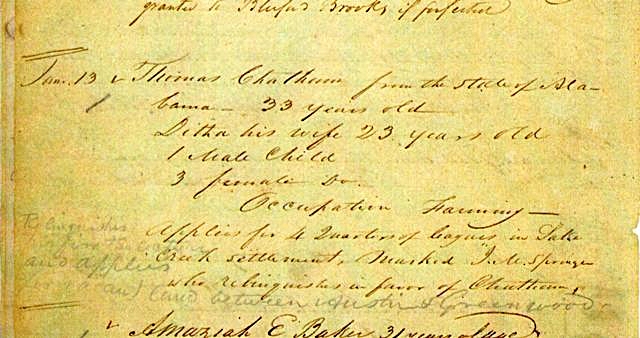 granted to Blufus Brooks if perfected
Jan. 13 Thomas Chathom from the State of Ala-
bama — 33 years old
Ditha his wife 23 years old
1 Male Child
3 female Do.
Occupation Farming —
Applies for 4 Quarters of leagues in Lake
Creek Settlement, Marked J. M. Springer
who relinquishes in favor of Chathom,
Relinquishes
and applies
for land between Austin & Greenwood.
Amaziah E Baker 31 years of age